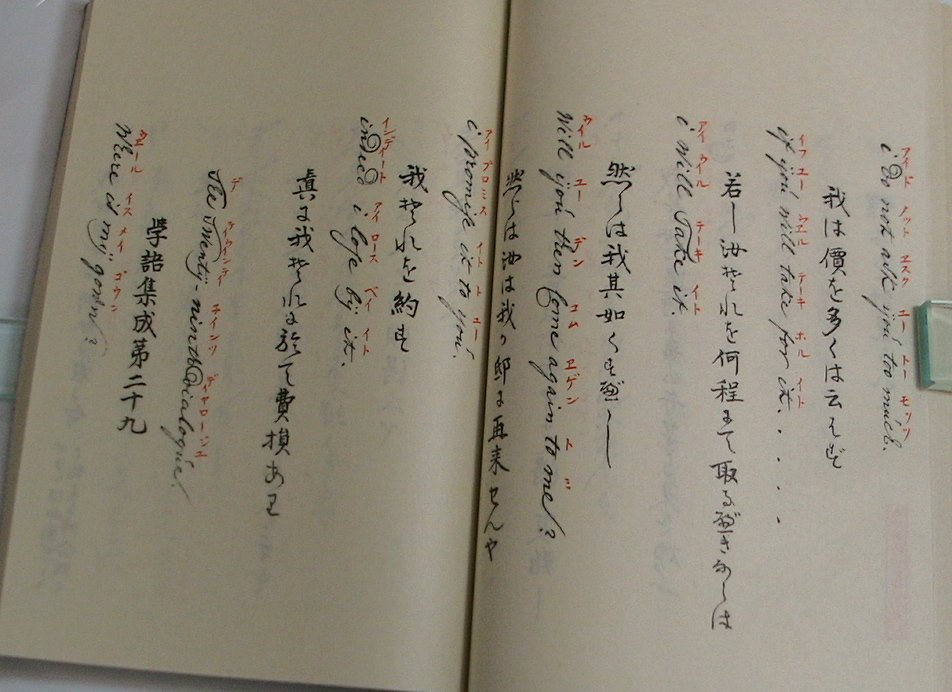 アイド ノット エスク ユー トー モッツ
i Do not ask you too much.
我は價を多くは云はず
イフ ユー ウエル テーキ ホル イト
if you will take for it. . . . .
若し汝それを何程まで取るべきならは
アイ ウイル テーキ イト
i will Take it.
然らは我其如くすべし
ウイル ユー デン コム エゲン ト ミ
Will you then Come again to me?
然らは汝は我が邸に再来せんや
アイ プロミス イト ト ユー
i promise it to you.
我それを約す
インディート アイ ロース バイ イト
indied i lose by it.
真に我それに於て費損あり
デ ティウインティ ネインツ ディヤロージユ
The Twenty-ninth Dialogue.
學語集成第二十九
ウエール イス メイ ゴウン
Where is my gown?